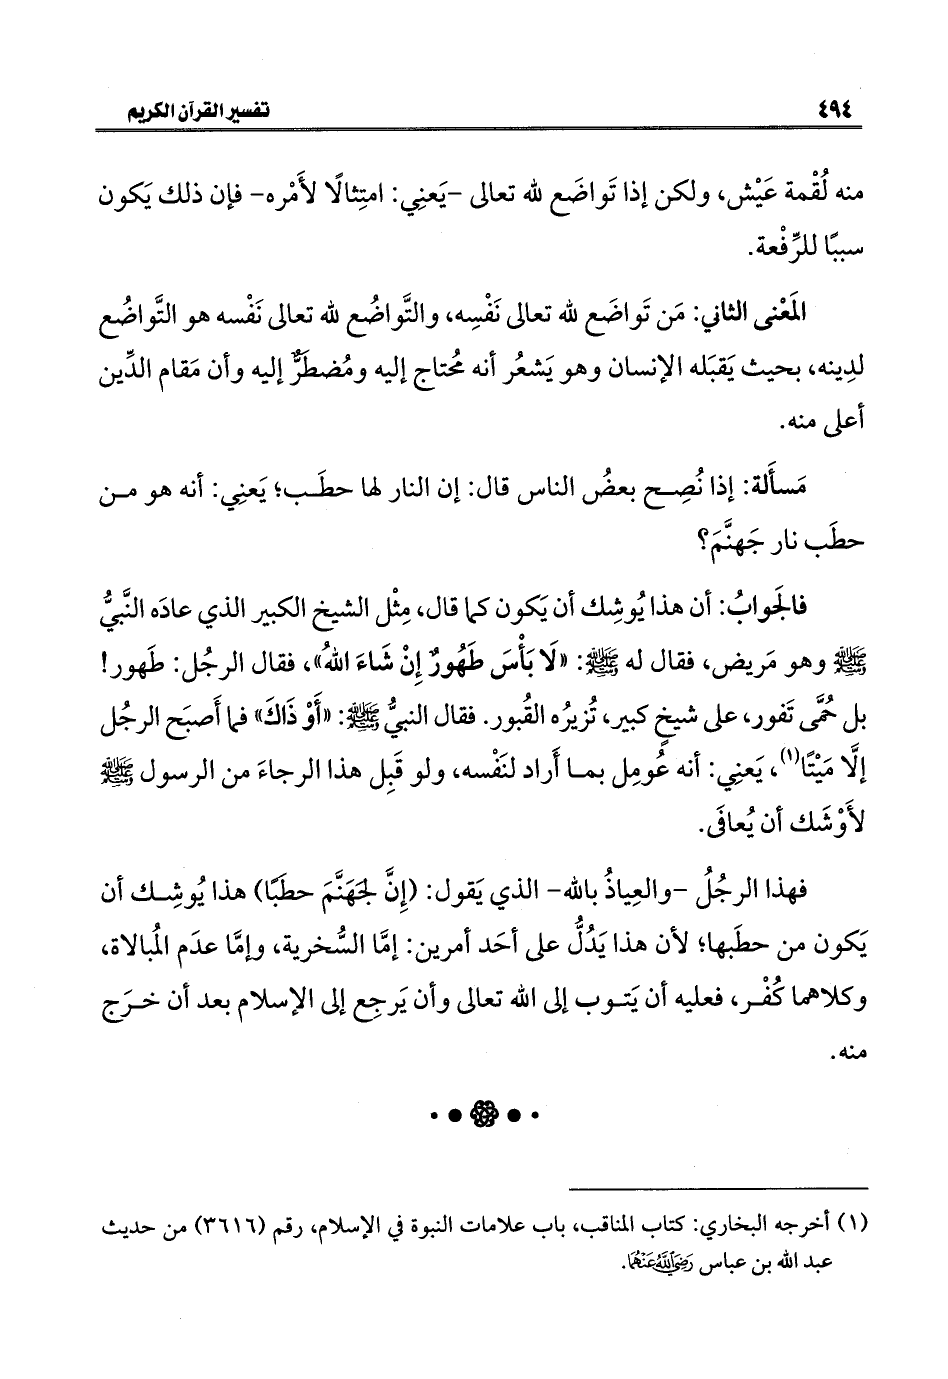 ٤٩٤
تفسير القرآن الكريم
منه لُقْمة عَيْش، ولكن إذا تَواضَع لله تعالى -يَعنِي: امتِثالًا لأَمْره- فإن ذلك يَكون
سببًا للرِّفْعة.
المَعْنى الثاني: مَن تَواضَع لله تعالى نَفْسِه، والتَّواضُع لله تعالى نَفْسه هو التَّواضُع
لدِينه، بحيث يَقبَله الإنسان وهو يَشعُر أنه مُحتاج إليه ومُضطَرٌّ إليه وأن مَقام الدِّين
أعلى منه.
مَسأَلة: إذا نُصِح بعضُ الناس قال: إن النار لها حطَب؛ يَعنِي: أنه هو من
حطَب نار جَهنَّمَ؟
فالجَوابُ: أن هذا يُوشِك أن يَكون كما قال، مِثْل الشيخ الكبير الذي عادَه النَّبيُّ
ﷺ وهو مَريض، فقال له ﷺ: «لَا بَأْسَ طَهُورٌ إِنْ شَاءَ اللهُ»، فقال الرجُل: طَهور!
بل حُمَّى تَفور، على شيخٍ كبير، تُزيرُه القُبور. فقال النبيُّ ﷺ: «أَوْ ذَاكَ» فما أَصبَح الرجُل
إلَّا مَيْتًا(١)، يَعنِي: أنه عُومِل بما أَراد لنَفْسه، ولو قَبِل هذا الرجاءَ من الرسول ﷺ
لأَوْشَك أن يُعافَى.
فهذا الرجُلُ -والعِياذُ بالله- الذي يَقول: (إنَّ لجَهَنَّمَ حطَبًا) هذا يُوشِك أن
يَكون من حطَبها؛ لأن هذا يَدُلُّ على أحَد أمرين: إمَّا السُّخرية، وإمَّا عدَم المُبالاة،
وكلاهما كُفْر، فعليه أن يَتوب إلى الله تعالى وأن يَرجِع إلى الإسلام بعد أن خرَج
منه.
(١) أخرجه البخاري: كتاب المناقب، باب علامات النبوة في الإسلام، رقم (٣٦١٦) من حديث
عبد الله بن عباس رَضِيَ اللَّهُ عَنْهُمَا.